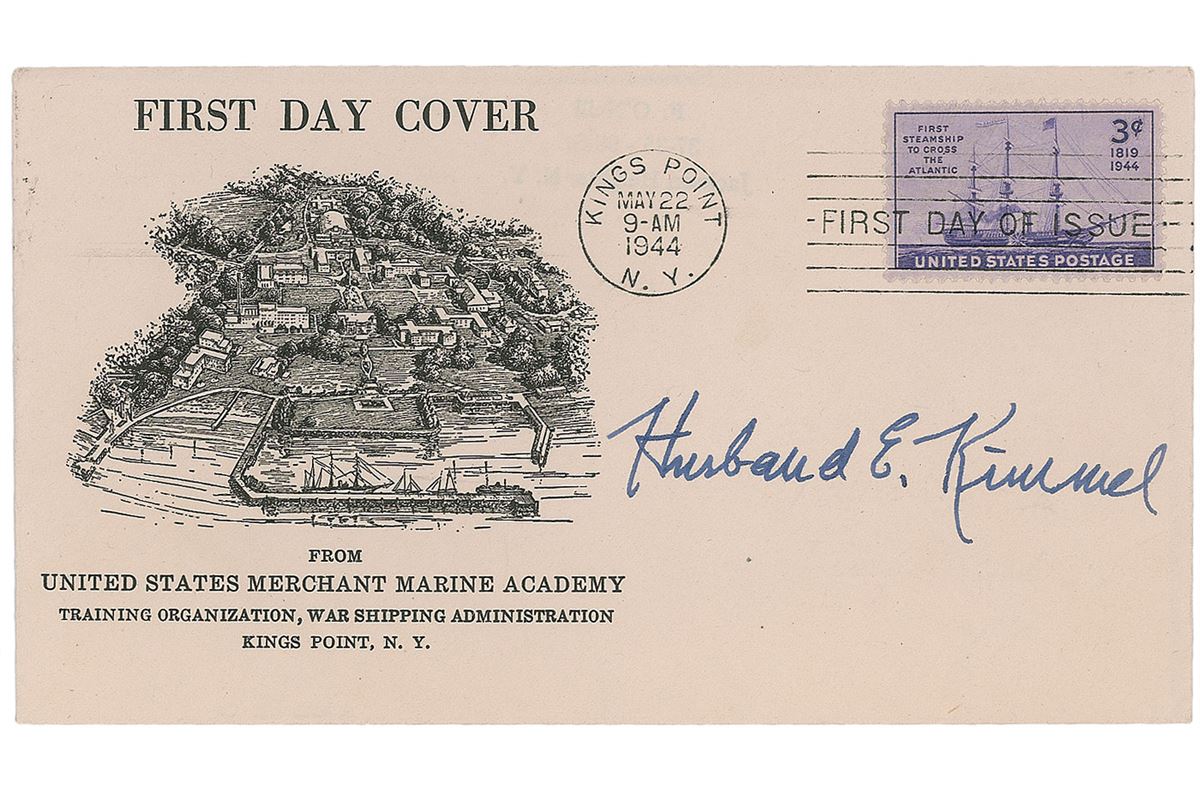 FIRST DAY COVER
KINGS POINT
MAY 22
9-AM
1944
N. Y.
FIRST
STEAMSHIP
TO CROSS
THE
ATLANTIC
3¢
1819
1944
FIRST DAY OF ISSUE
UNITED STATES POSTAGE
Husband E. Kimmel
FROM
UNITED STATES MERCHANT MARINE ACADEMY
TRAINING ORGANIZATION, WAR SHIPPING ADMINISTRATION
KINGS POINT, N. Y.